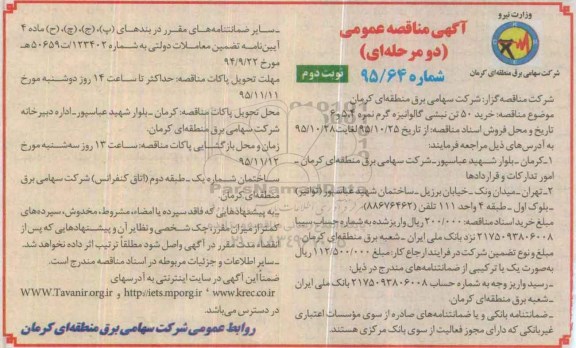 وزارت نیرو
شرکت سهامی برق منطقه‌ای کرمان
آگهی مناقصه عمومی
(دو مرحله‌ای)
شماره ۹۵/۶۴
نوبت دوم
شرکت مناقصه‌گزار: شرکت سهامی برق منطقه‌ای کرمان
موضوع مناقصه: خرید ۵۰ تن نبشی گالوانیزه گرم نمره ۴، ۵ و ۶
تاریخ و محل فروش اسناد مناقصه: از تاریخ ۹۵/۱۰/۲۵ لغایت ۹۵/۱۰/۲۸
به آدرس‌های ذیل مراجعه فرمایند:
۱ـ کرمان ـ بلوار شهید عباسپور ـ شرکت سهامی برق منطقه‌ای کرمان ـ
امور تدارکات و قراردادها
۲ـ تهران ـ میدان ونک ـ خیابان برزیل ـ ساختمان شهید عباسپور (توانیر)
ـ بلوک اول ـ طبقه ۴ واحد ۱۱۱ تلفن (۸۸۶۷۶۴۶۲)
مبلغ خرید اسناد مناقصه: ۲۰۰/۰۰۰ ریال واریز شده به شماره حساب سیبا
۲۱۷۵۰۹۳۸۰۶۰۰۸ نزد بانک ملی ایران ـ شعبه برق منطقه‌ای کرمان
مبلغ و نوع تضمین شرکت در فرایند ارجاع کار: مبلغ ۱۱۲/۵۰۰/۰۰۰ ریال
به‌صورت یک یا ترکیبی از ضمانتنامه‌های مندرج در ذیل:
ـ رسید واریز وجه به شماره حساب ۲۱۷۵۰۹۳۸۰۶۰۰۸ بانک ملی ایران
ـ شعبه برق منطقه‌ای کرمان.
ـ ضمانتنامه بانکی و یا ضمانتنامه‌های صادره از سوی مؤسسات اعتباری
غیربانکی که دارای مجوز فعالیت از سوی بانک مرکزی هستند.
ـ سایر ضمانتنامه‌های مقرر در بندهای (پ)، (ج)، (چ)، (ح) ماده ۴
آیین‌نامه تضمین معاملات دولتی به شماره ۱۲۳۴۰۲/ت۵۰۶۵۹هـ
مورخ ۹۴/۹/۲۲
مهلت تحویل پاکات مناقصه: حداکثر تا ساعت ۱۴ روز دوشنبه مورخ
۹۵/۱۱/۱۱
محل تحویل پاکات مناقصه: کرمان ـ بلوار شهید عباسپور ـ اداره دبیرخانه
شرکت سهامی برق منطقه‌ای کرمان.
زمان و محل بازگشایی پاکات مناقصه: ساعت ۱۳ روز سه‌شنبه مورخ
۹۵/۱۱/۱۲
ساختمان شماره یک ـ طبقه دوم (اتاق کنفرانس) شرکت سهامی برق
منطقه‌ای کرمان
ـ به پیشنهادهایی که فاقد سپرده یا امضاء، مشروط، مخدوش، سپرده‌های
کمتر از میزان مقرر، چک شخصی و نظایر آن و پیشنهادهایی که پس از
انقضاء مدت مقرر در آگهی واصل شود مطلقاً ترتیب اثر داده نخواهد شد.
ـ سایر اطلاعات و جزئیات مربوطه در اسناد مناقصه مندرج است.
ضمناً این آگهی در سایت اینترنتی به آدرسهای
www.krec.co.ir ، http://iets.mporg.ir و WWW.Tavanir.org.ir
در دسترس می‌باشد.
روابط عمومی شرکت سهامی برق منطقه‌ای کرمان